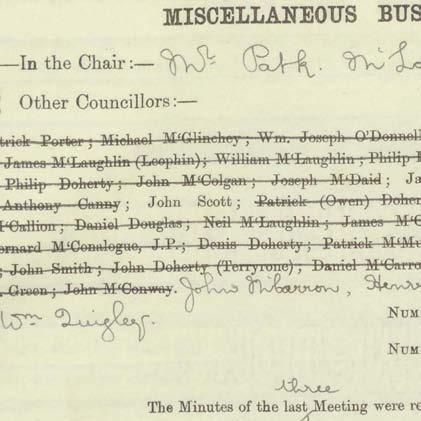 MISCELLANEOUS BUS
In the Chair:— Mr. Patk. McLa
Other Councillors:—
trick Porter; Michael M'Glinchey; Wm. Joseph O'Donnell
James M'Laughlin (Leophin); William M'Laughlin; Philip
Philip Doherty; John M'Colgan; Joseph M'Daid; Ja
Anthony Canny; John Scott; Patrick (Owen) Doher
M'Callion; Daniel Douglas; Neil M'Laughlin; James M'C
ernard M'Conalogue, J.P.; Denis Doherty; Patrick M'Mu
; John Smith; John Doherty (Terryrone); Daniel M'Carro
. Green; John M'Conway. John McCarron, Henr
Wm Quigley.
NUM
NUM
three
The Minutes of the last Meeting were re